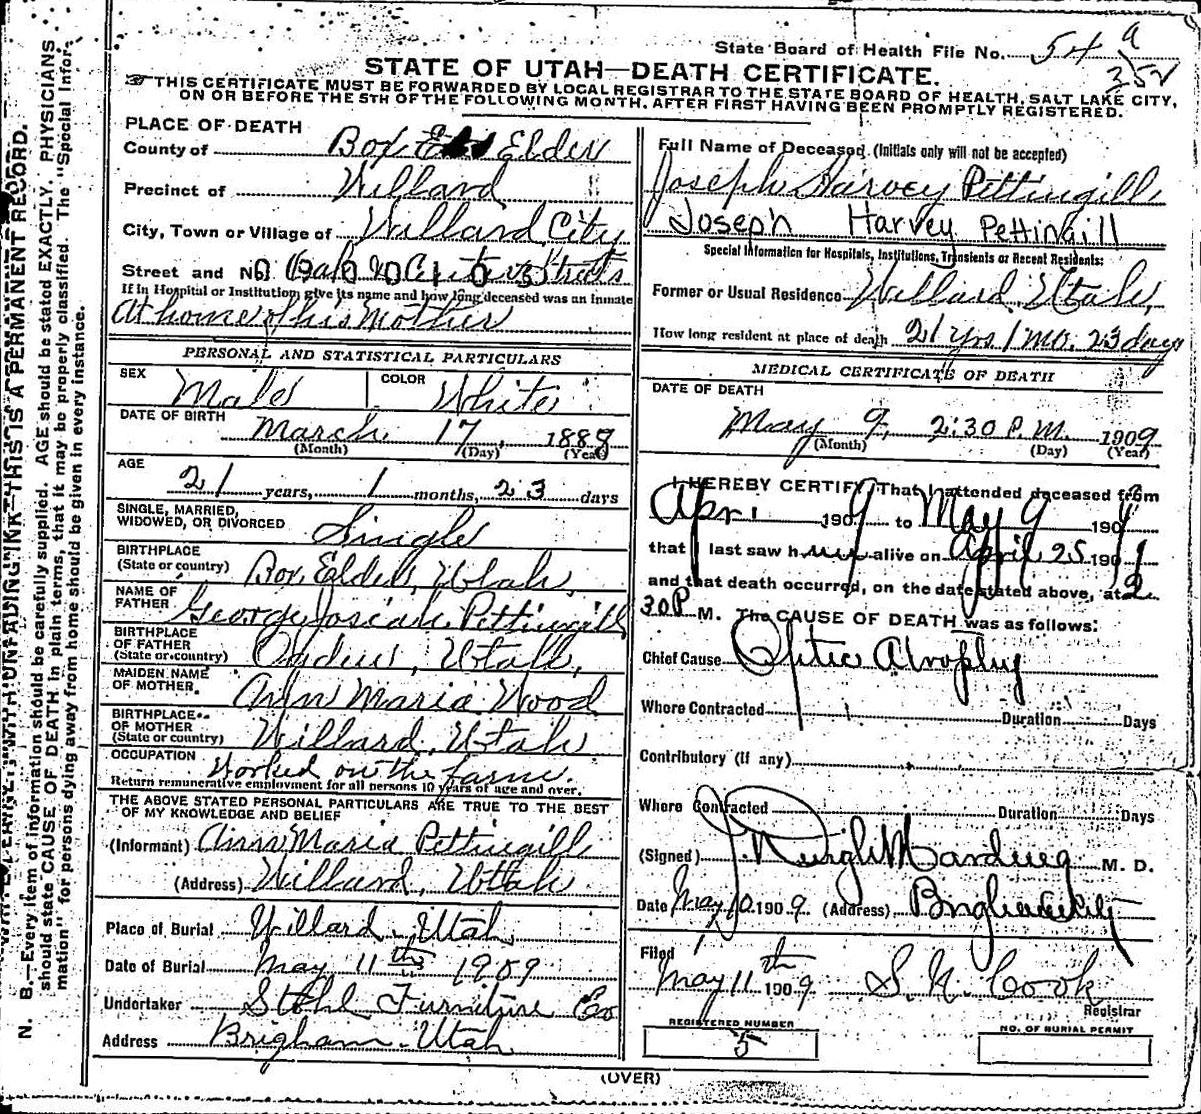 State Board of Health File No. 54 a
352
STATE OF UTAH—DEATH CERTIFICATE.
THIS CERTIFICATE MUST BE FORWARDED BY LOCAL REGISTRAR TO THE STATE BOARD OF HEALTH, SALT LAKE CITY,
ON OR BEFORE THE 5TH OF THE FOLLOWING MONTH, AFTER FIRST HAVING BEEN PROMPTLY REGISTERED.
N. B.—Every item of information should be carefully supplied. AGE should be stated EXACTLY. PHYSICIANS
should state CAUSE OF DEATH in plain terms, that it may be properly classified. The "Special Infor-
mation" for persons dying away from home should be given in every instance.
WITH UNFADING INK—THIS IS A PERMANENT RECORD.
PLACE OF DEATH
County of Box Elder
Precinct of Willard
City, Town or Village of Willard City
Street and No. Streets
If in Hospital or Institution, give its name and how long deceased was an inmate
At home of his Mother
PERSONAL AND STATISTICAL PARTICULARS
SEX Male COLOR White
DATE OF BIRTH March 17, 1888
(Month) (Day) (Year)
AGE 21 years, 1 months, 23 days
SINGLE, MARRIED,
WIDOWED, OR DIVORCED Single
BIRTHPLACE
(State or country) Box Elder, Utah,
NAME OF
FATHER George Josiah Pettingill
BIRTHPLACE
OF FATHER
(State or country) Ogden, Utah,
MAIDEN NAME
OF MOTHER. Ann Maria Wood
BIRTHPLACE
OF MOTHER
(State or country) Willard, Utah
OCCUPATION Worked on the farm.
Return remunerative employment for all persons 10 years of age and over.
THE ABOVE STATED PERSONAL PARTICULARS ARE TRUE TO THE BEST
OF MY KNOWLEDGE AND BELIEF
(Informant) Ann Maria Pettingill
(Address) Willard, Utah
Place of Burial Willard Utah
Date of Burial May 11th 1909
Undertaker Stohl Furniture Co
Address Brigham Utah
Full Name of Deceased (Initials only will not be accepted)
Joseph Harvey Pettingill
Joseph Harvey Pettingill
Special Information for Hospitals, Institutions, Transients or Recent Residents:
Former or Usual Residence Willard Utah,
How long resident at place of death 21 yrs 1 mo. 23 days
MEDICAL CERTIFICATE OF DEATH
DATE OF DEATH
May 9, 2:30 P.M. 1909
(Month) (Day) (Year)
I HEREBY CERTIFY That I attended deceased from
Apr. 1909 to May 9 1909
that I last saw him alive on April 25 1909
and that death occurred, on the date stated above, at 2
30 P M. The CAUSE OF DEATH was as follows:
Chief Cause Optic Atrophy
Where Contracted Duration Days
Contributory (if any)
Where Contracted Duration Days
(Signed) M. D.
Date May 10 1909 (Address) Brigham City
Filed
May 11th 1909 S. N. Cook
Registrar
REGISTERED NUMBER
5
NO. OF BURIAL PERMIT
(OVER)